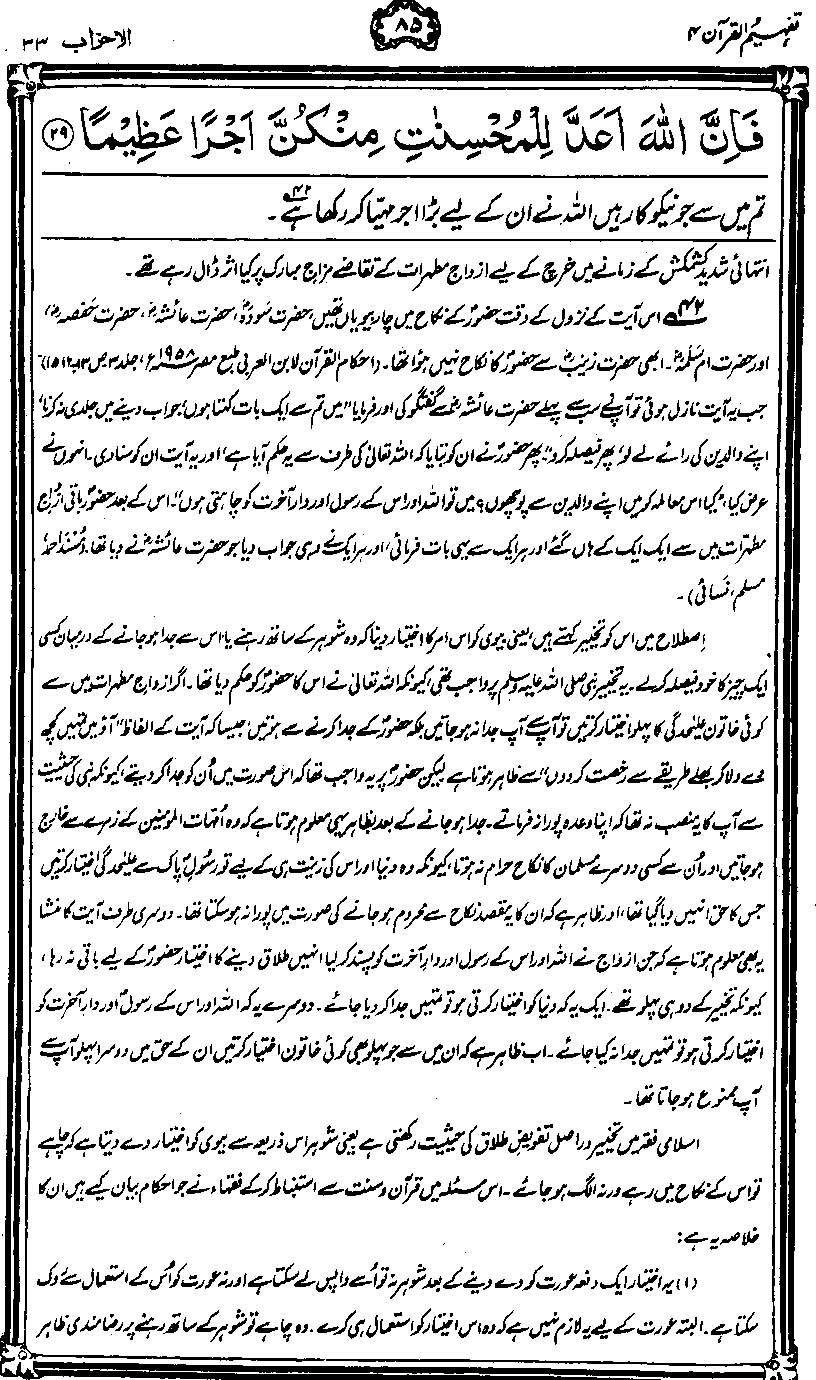 تفہیم القرآن ۴
۸۵
الاحزاب ۳۳
فَاِنَّ اللّٰهَ اَعَدَّ لِلْمُحْسِنٰتِ مِنْكُنَّ اَجْرًا عَظِيْمًا ۲۹
تم میں سے جو نیکوکار ہیں اللہ نے ان کے لیے بڑا اجر مہیّا کر رکھا ہے ۴۲۔
انتہائی شدید کشمکش کے زمانے میں خرچ کے لیے ازواج مطہرات کے تقاضے مزاج مبارک پر کیا اثر ڈال رہے تھے۔
۴۲ اس آیت کے نزول کے وقت حضورؐ کے نکاح میں چار بیویاں تھیں، حضرت سَودہؓ، حضرت عائشہؓ، حضرت حَفصہؓ،
اور حضرت ام سَلَمہؓ۔ ابھی حضرت زینبؓ سے حضورؐ کا نکاح نہیں ہؤا تھا۔ (احکام القرآن لابن العربی طبع مصر ۱۹۵۸ء، جلد ۳ ص
جب یہ آیت نازل ہوئی تو آپؐ نے سب سے پہلے حضرت عائشہؓ سے گفتگو کی اور فرمایا "میں تم سے ایک بات کہتا ہوں، جواب دینے میں جلدی نہ کرنا،
اپنے والدین کی رائے لے لو، پھر فیصلہ کرو"۔ پھر حضورؐ نے ان کو بتایا کہ اللہ تعالیٰ کی طرف سے یہ حکم آیا ہے، اور یہ آیت ان کو سنا دی۔ انہوں نے
عرض کیا، "کیا اس معاملہ کو میں اپنے والدین سے پوچھوں؟ میں تو اللہ اور اس کے رسول اور دار آخرت کو چاہتی ہوں"۔ اس کے بعد حضورؐ باقی ازواج
مطہرات میں سے ایک ایک کے ہاں گئے اور ہر ایک سے یہی بات فرمائی، اور ہر ایک نے وہی جواب دیا جو حضرت عائشہؓ نے دیا تھا۔ (مُسند احمد،
مسلم، نَسائی)۔
اِصطلاح میں اس کو تخییر کہتے ہیں، یعنی بیوی کو اس امر کا اختیار دینا کہ وہ شوہر کے ساتھ رہنے یا اس سے جدا ہو جانے کے درمیان کسی
ایک چیز کا خود فیصلہ کر لے۔ یہ تخییر نبی صلی اللہ علیہ وسلم پر واجب تھی، کیونکہ اللہ تعالیٰ نے اس کا حضورؐ کو حکم دیا تھا۔ اگر ازواج مطہرات میں سے
کوئی خاتون علیٰحدگی کا پہلو اختیار کرتیں تو آپ سے آپ جدا نہ ہو جاتیں بلکہ حضورؐ کے جدا کرنے سے ہوتیں، جیسا کہ آیت کے الفاظ "آؤ میں تمہیں کچھ
دے دلا کر بھلے طریقے سے رخصت کر دوں" سے ظاہر ہوتا ہے لیکن حضورؐ پر یہ واجب تھا کہ اس صورت میں اُن کو جدا کر دیتے، کیونکہ نبی کی حیثیت
سے آپ کا یہ منصب نہ تھا کہ اپنا وعدہ پورا نہ فرماتے۔ جدا ہو جانے کے بعد بظاہر یہی معلوم ہوتا ہے کہ وہ اُمہات المؤمنین کے زمرے سے خارج
ہو جاتیں اور اُن سے کسی دوسرے مُسلمان کا نکاح حرام نہ ہوتا، کیونکہ وہ دنیا اور اس کی زینت ہی کے لیے تو رسُولِ پاک سے علیٰحدگی اختیار کرتیں
جس کا حق انہیں دیا گیا تھا، اور ظاہر ہے کہ ان کا یہ مقصد نکاح سے محروم ہو جانے کی صورت میں پورا نہ ہو سکتا تھا۔ دوسری طرف آیت کا منشا
یہ بھی معلوم ہوتا ہے کہ جن ازواج نے اللہ اور اس کے رسول اور دارِ آخرت کو پسند کر لیا انہیں طلاق دینے کا اختیار حضورؐ کے لیے باقی نہ رہا،
کیونکہ تخییر کے دو ہی پہلو تھے۔ ایک یہ کہ دنیا کو اختیار کرتی ہو تو تمہیں جدا کر دیا جائے۔ دوسرے یہ کہ اللہ اور اس کے رسولؐ اور دارِ آخرت کو
اختیار کرتی ہو تو تمہیں جدا نہ کیا جائے۔ اب ظاہر ہے کہ ان میں سے جو پہلو بھی کوئی خاتون اختیار کرتیں ان کے حق میں دوسرا پہلو آپ سے
آپ ممنوع ہو جاتا تھا۔
اسلامی فقہ میں تخییر دراصل تفویضِ طلاق کی حیثیت رکھتی ہے یعنی شوہر اس ذریعہ سے بیوی کو اختیار دے دیتا ہے کہ چاہے
تو اس کے نکاح میں رہے ورنہ الگ ہو جائے۔ اس مسئلہ میں قرآن و سنت سے استنباط کر کے فقہاء نے جو احکام بیان کیے ہیں ان کا
خلاصہ یہ ہے:
(۱) یہ اختیار ایک دفعہ عورت کو دے دینے کے بعد شوہر نہ تو اُسے واپس لے سکتا ہے اور نہ عورت کو اُس کے استعمال سے روک
سکتا ہے۔ البتہ عورت کے لیے یہ لازم نہیں ہے کہ وہ اس اختیار کو استعمال ہی کرے۔ وہ چاہے تو شوہر کے ساتھ رہنے پر رضامندی ظاہر